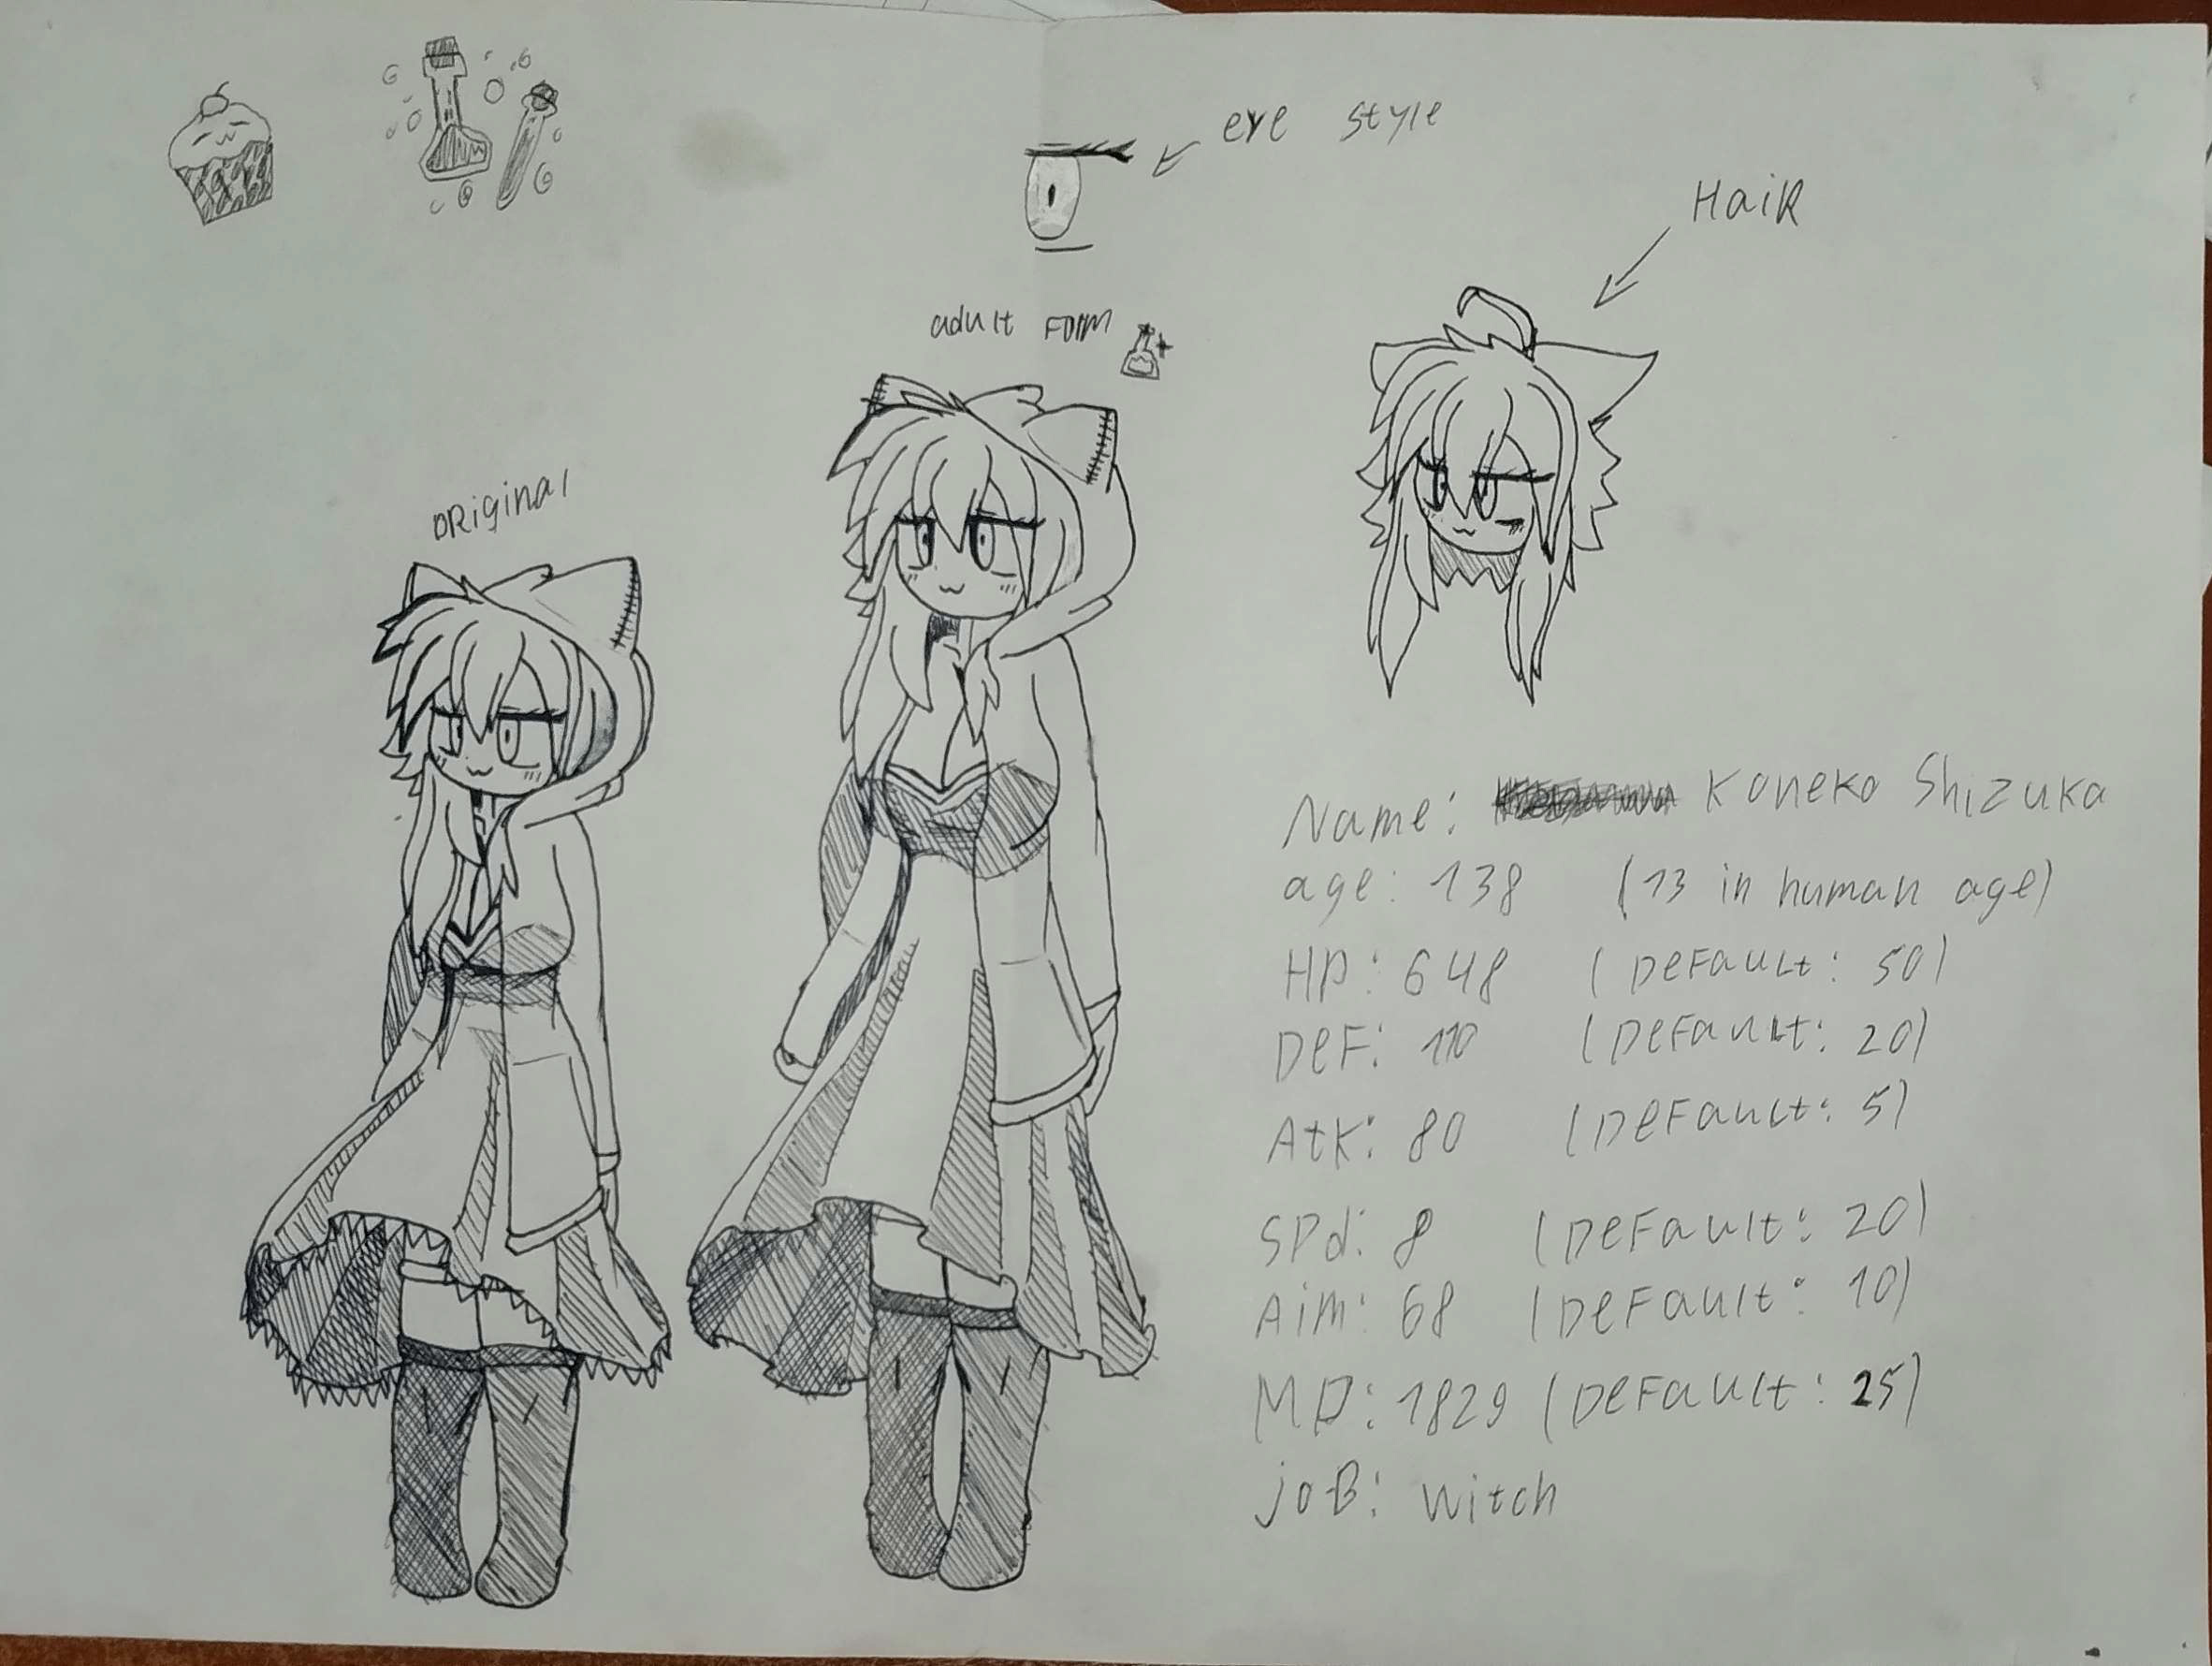 eye style
Hair
adult form
original
Name: Koneko Shizuka
age: 138 (13 in human age)
HP: 648 (Default: 50)
Def: 110 (Default: 20)
Atk: 80 (Default: 5)
SPd: 8 (Default: 20)
Aim: 68 (Default: 10)
MP: 1829 (Default: 25)
joB: witch